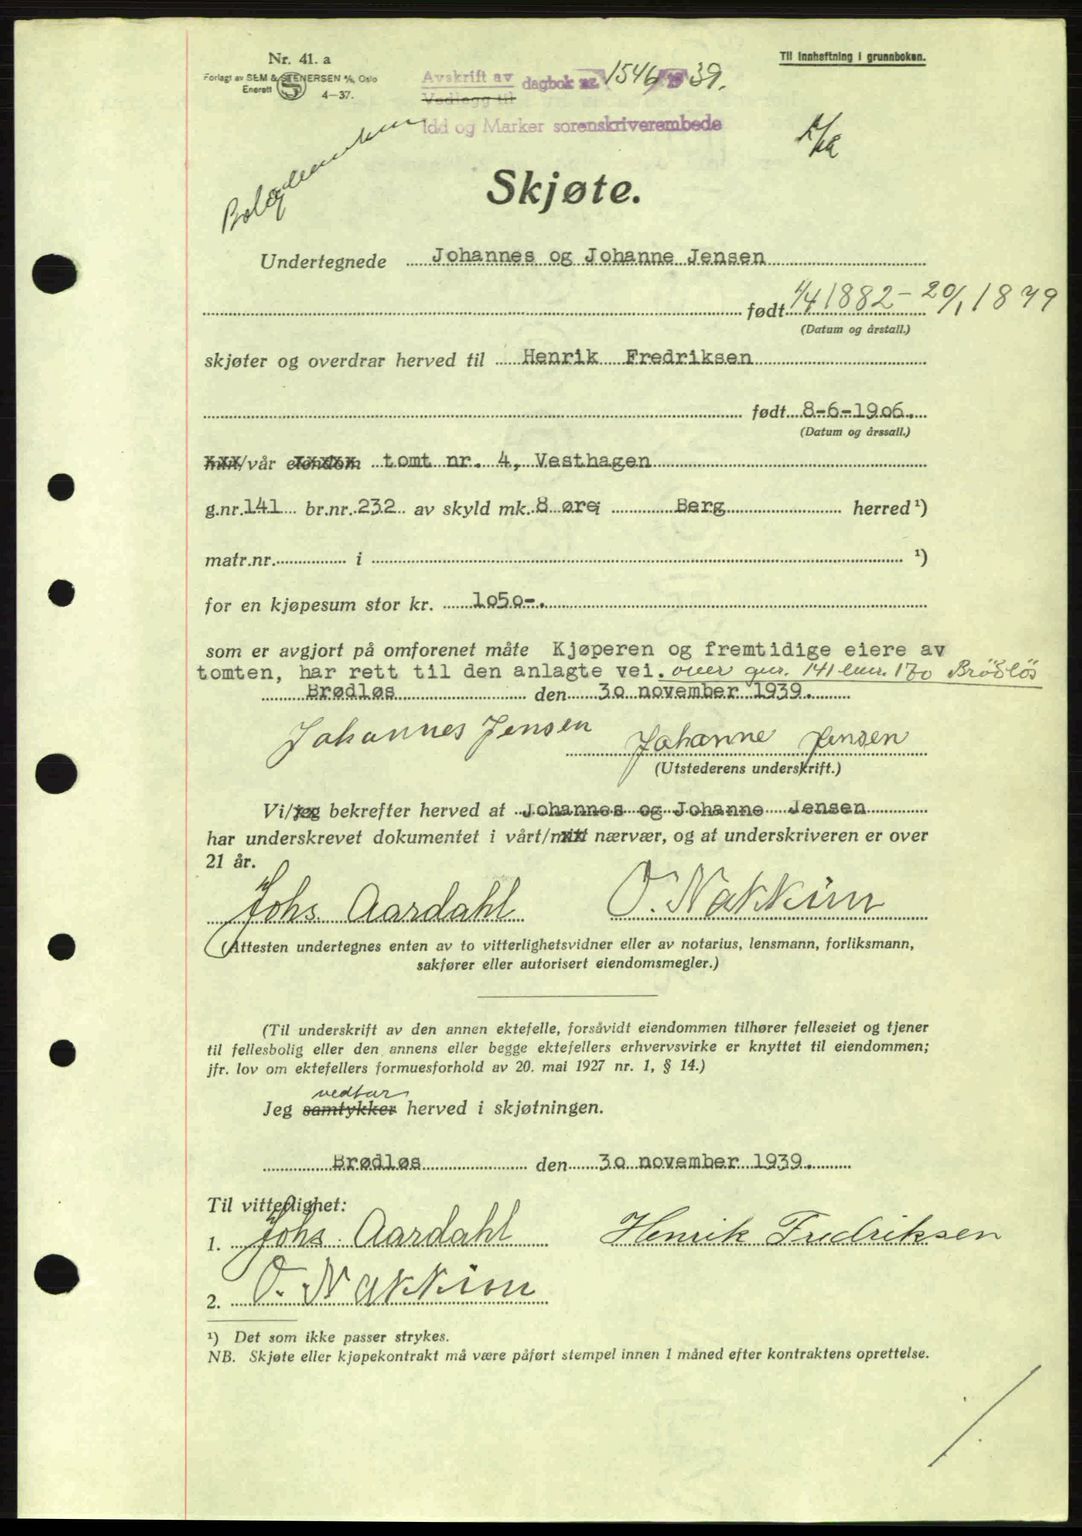 Nr. 41. a
Forlagt av SEM & STENERSEN A/S, Oslo
Enerett S 4-37.
Til innheftning i grunnboken.
Avskrift av dagbok nr. 1546/1939.
Vedlegg til
Idd og Marker sorenskriverembede
Skjøte.
Undertegnede Johannes og Johanne Jensen
født 1/4 1882 - 20/1 1879
(Datum og årstall.)
skjøter og overdrar herved til Henrik Fredriksen
født 8-6-1906.
(Datum og årssall.)
min/vår eiendom tomt nr. 4, Vesthagen
g.nr. 141 br.nr. 232 av skyld mk. 8 øre i Berg herred ¹)
matr.nr. i ¹)
for en kjøpesum stor kr. 1050-.
som er avgjort på omforenet måte Kjøperen og fremtidige eiere av
tomten, har rett til den anlagte vei. over gnr. 141 bnr. 170 Brödlös
Brødløs den 30 november 1939.
Johannes Jensen Johanne Jensen
(Utstederens underskrift.)
Vi/jeg bekrefter herved at Johannes og Johanne Jensen
har underskrevet dokumentet i vårt/mitt nærvær, og at underskriveren er over
21 år.
Johs Aardahl O. Nakkim
(Attesten undertegnes enten av to vitterlighetsvidner eller av notarius, lensmann, forliksmann,
sakfører eller autorisert eiendomsmegler.)
(Til underskrift av den annen ektefelle, forsåvidt eiendommen tilhører felleseiet og tjener
til fellesbolig eller den annens eller begge ektefellers erhvervsvirke er knyttet til eiendommen;
jfr. lov om ektefellers formuesforhold av 20. mai 1927 nr. 1, § 14.)
vedtar
Jeg samtykker herved i skjøtningen.
Brødløs den 30 november 1939.
Til vitterlighet:
1. Johs Aardahl Henrik Fredriksen
2. O. Nakkim
¹) Det som ikke passer strykes.
NB. Skjøte eller kjøpekontrakt må være påført stempel innen 1 måned efter kontraktens oprettelse.